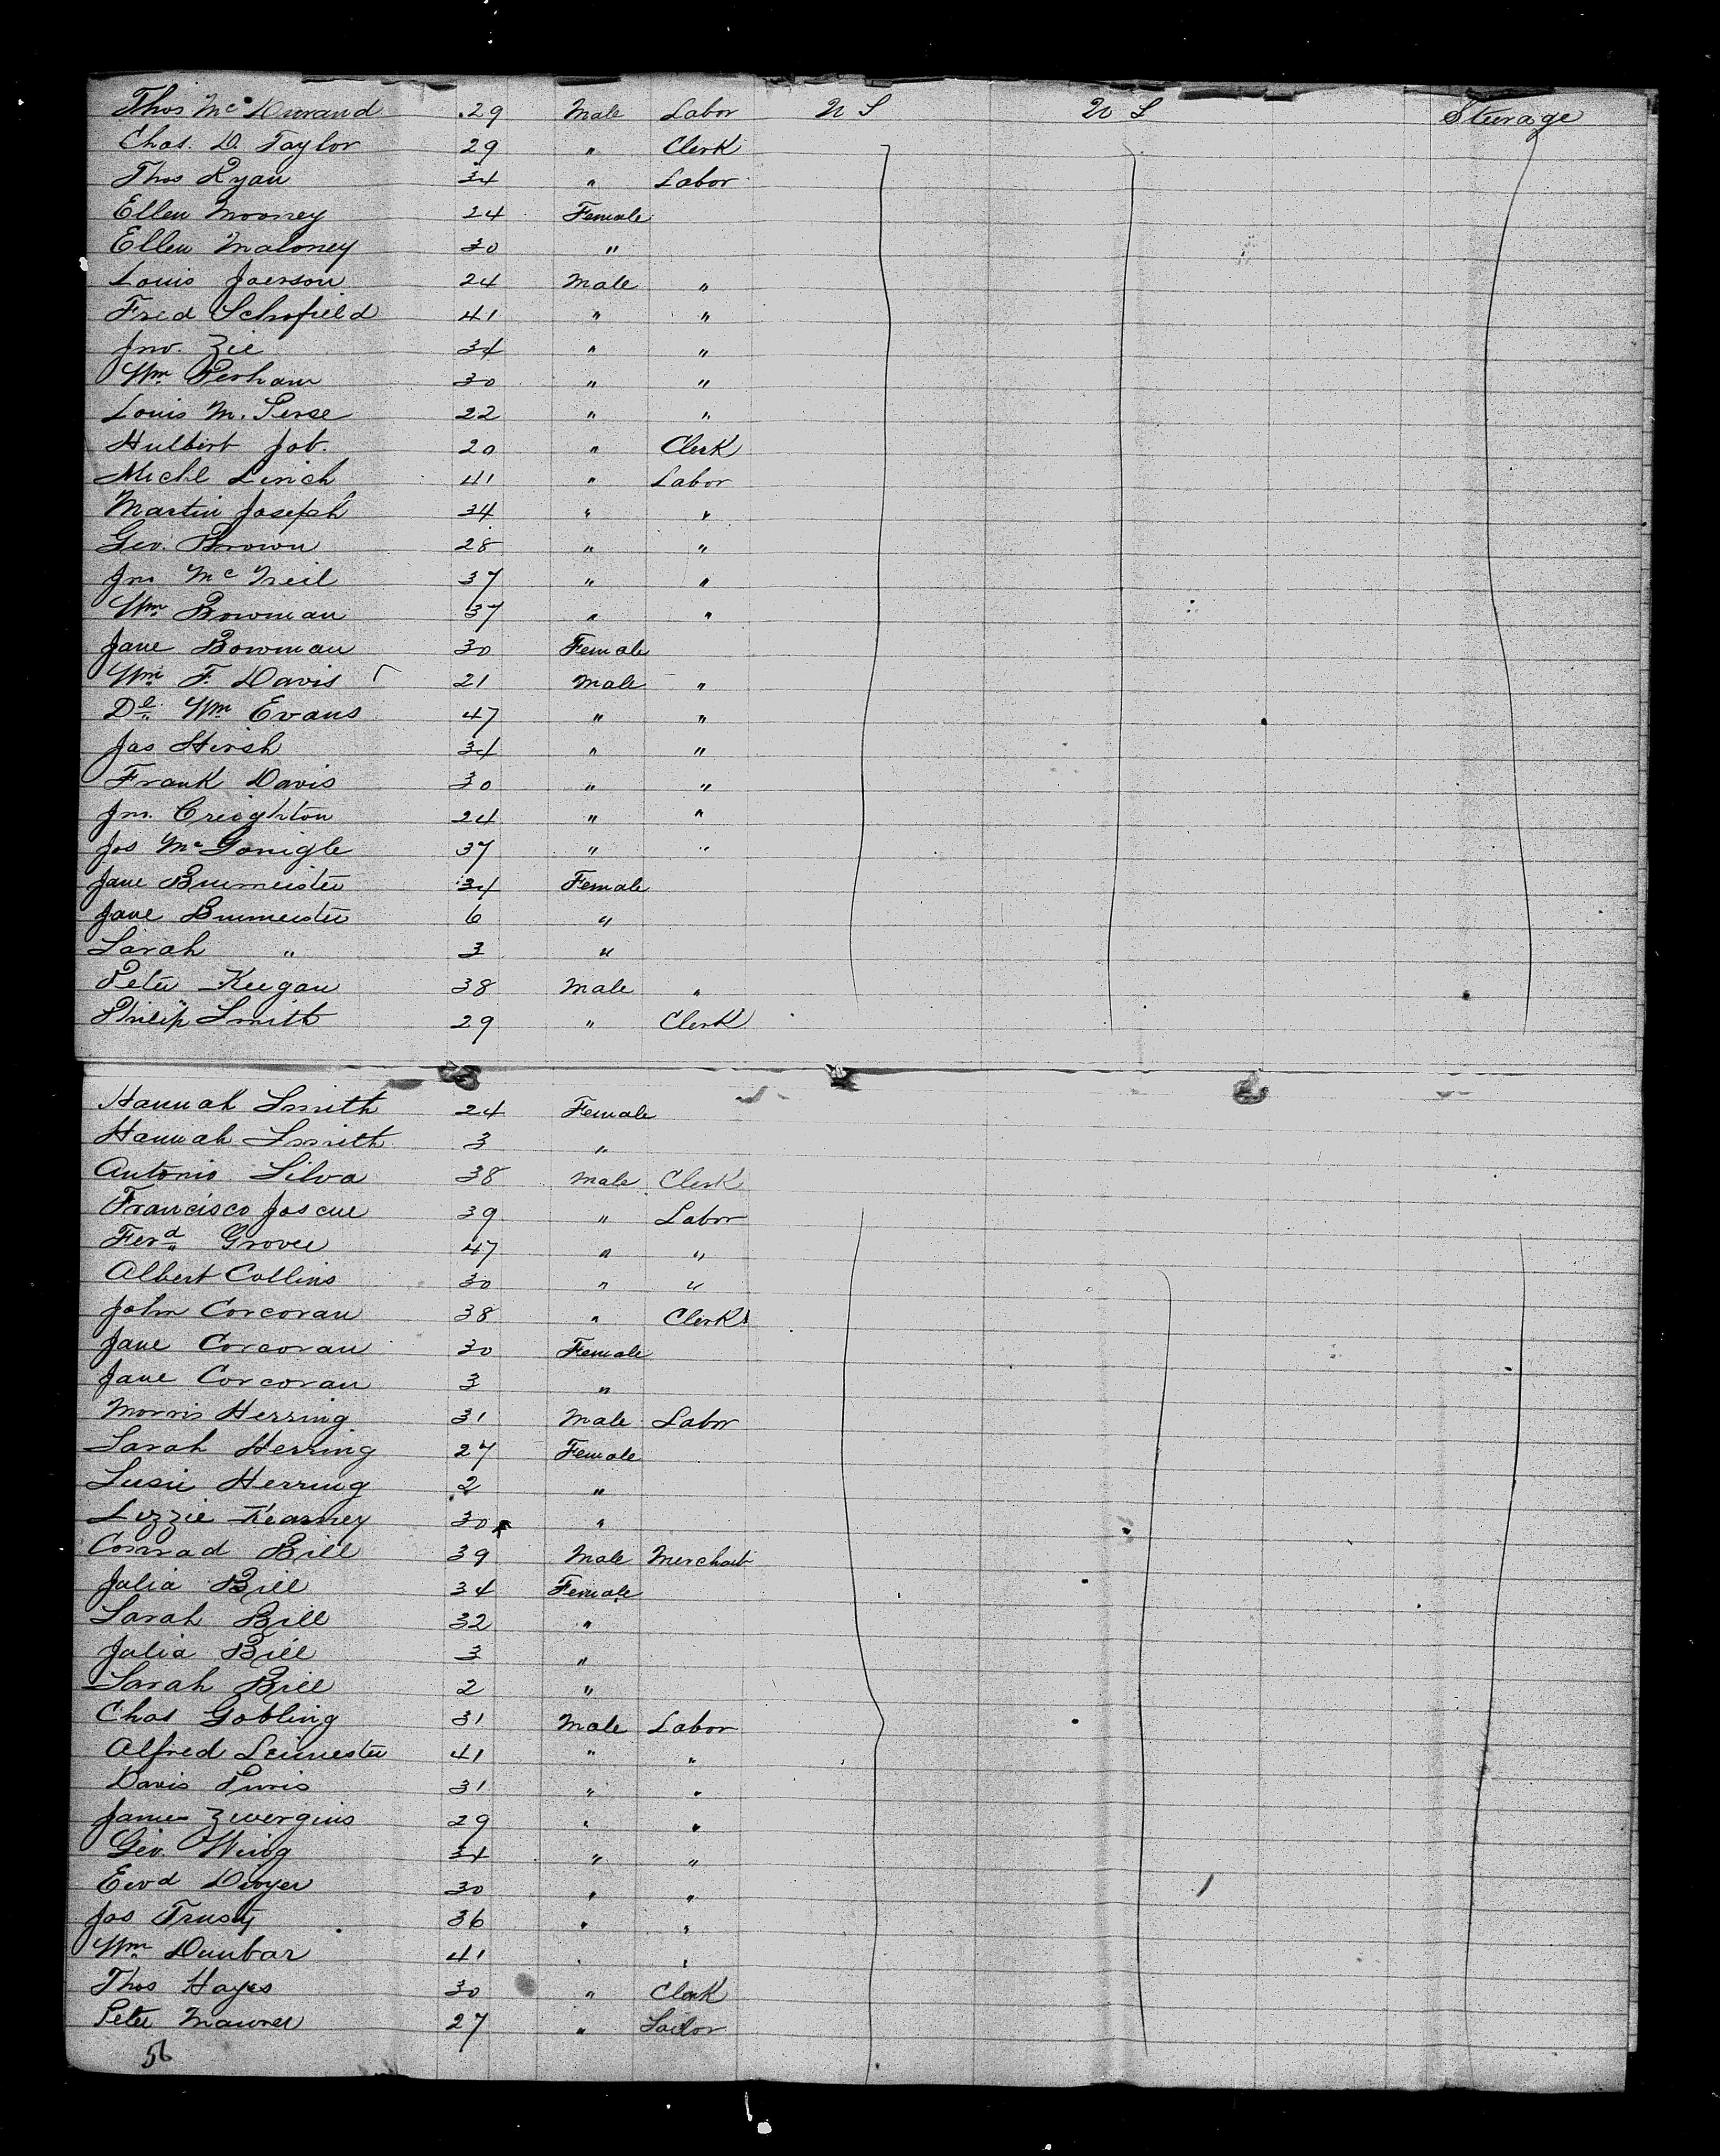 Thos Mc Durand 29 Male Labor U S U S Sturage
Chas. D. Taylor 29 " Clerk
Thos Ryan 34 " Labor
Ellen Mooney 24 Female
Ellen Maloney 30 "
Louis Jaerson 24 Male "
Fred Schofield 41 " "
Jno. Zie 34 " "
Wm Perham 30 " "
Louis M. Perse 22 " "
Hulbert Job. 20 " Clerk
Michl Linch 41 " Labor
Martin Joseph 34 " "
Geo. Brown 28 " "
Jno Mc Neil 37 " "
Wm Bowman 37 " "
Jane Bowman 30 Female
Wm F. Davis 21 Male "
Dl Wm Evans 47 " "
Jas Hirsh 34 " "
Frank Davis 30 " "
Jno. Creighton 24 " "
Jos McGonigle 37 " "
Jane Burmeister 34 Female
Jane Burmeister 6 "
Sarah " 3 "
Peter Keegan 38 Male "
Philip Smith 29 " Clerk
Hannah Smith 24 Female
Hannah Smith 3 "
Antonio Silva 38 Male Clerk
Francisco Joscue 39 " Labor
Ferd Grover 47 " "
Albert Collins 30 " "
John Corcoran 38 " Clerk
Jane Corcoran 30 Female
Jane Corcoran 3 "
Morris Herring 31 Male Labor
Sarah Herring 27 Female
Susie Herring 2 "
Lizzie Kearney 30 "
Conrad Bill 39 Male Merchat
Julia Bill 34 Female
Sarah Bill 32 "
Julia Bill 3 "
Sarah Bill 2 "
Chas Gobling 31 Male Labor
Alfred Leinester 41 " "
Davis Puris 31 " "
James Zwergius 29 " "
Geo. Wing 34 " "
Edwd Dwyer 30 " "
Jas Trusty 36 " "
Wm Dunbar 41 " "
Thos Hayes 30 " Clerk
Peter Maurer 27 " Sailor
56